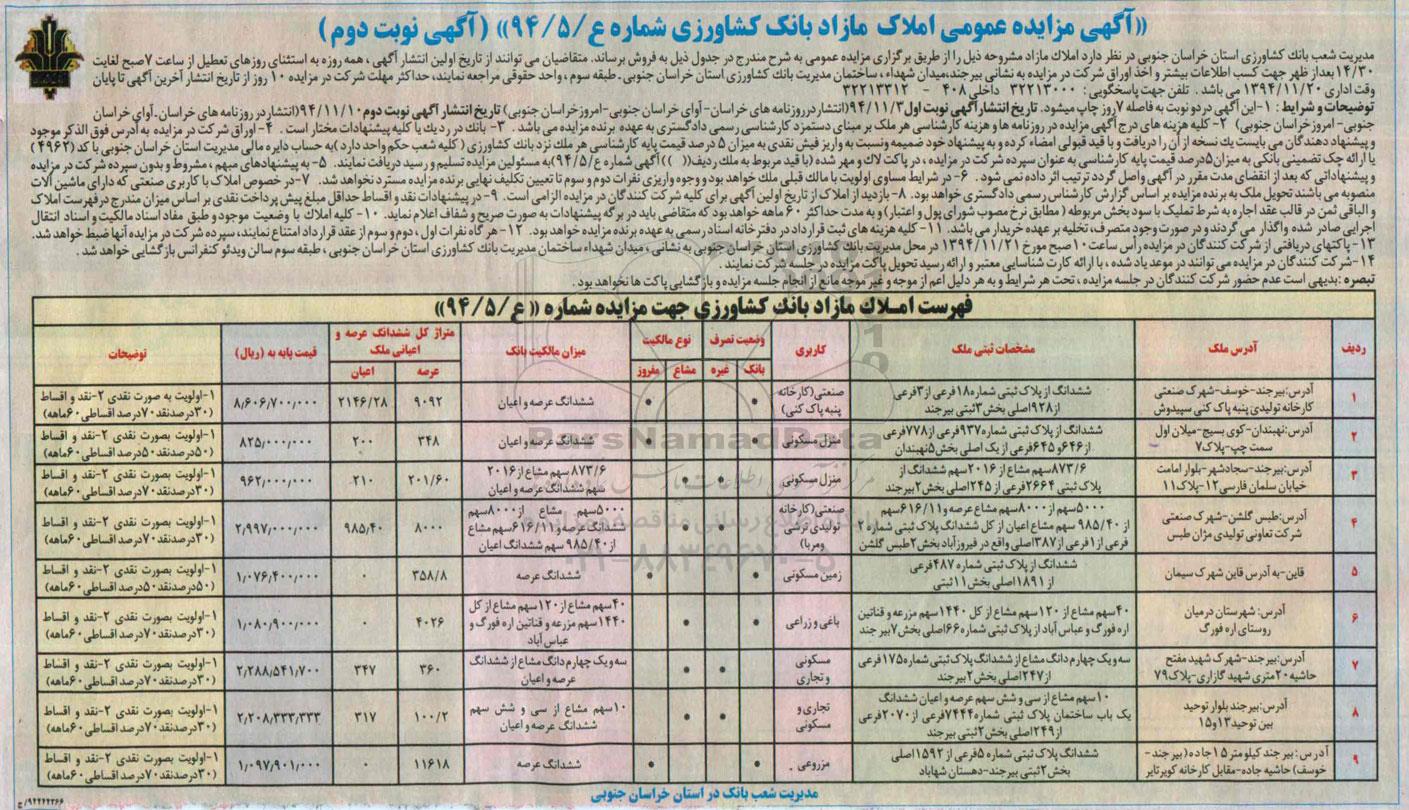 «آگهی مزایده عمومی املاک مازاد بانک کشاورزی شماره ع/۹۴/۵» (آگهی نوبت دوم)
مدیریت شعب بانک کشاورزی استان خراسان جنوبی در نظر دارد املاک مازاد مشروحه ذیل را از طریق برگزاری مزایده عمومی به شرح مندرج در جدول ذیل به فروش برساند. متقاضیان می توانند از تاریخ اولین انتشار آگهی ، همه روزه به استثنای روزهای تعطیل از ساعت ۷صبح لغایت
۱۴/۳۰بعداز ظهر جهت کسب اطلاعات بیشتر و اخذ اوراق شرکت در مزایده به نشانی بیرجند،میدان شهداء ، ساختمان مدیریت بانک کشاورزی استان خراسان جنوبی.طبقه سوم ، واحد حقوقی مراجعه نمایند، حداکثر مهلت شرکت در مزایده ۱۰ روز از تاریخ انتشار آخرین آگهی تا پایان
وقت اداری ۱۳۹۴/۱۱/۲۰ می باشد . تلفن جهت پاسخگویی : ۳۲۲۱۳۰۰۰ داخلی ۴۰۸ - ۳۲۲۱۳۳۱۲
توضیحات و شرایط : ۱-این آگهی در دو نوبت به فاصله ۷ روز چاپ میشود. تاریخ انتشار آگهی نوبت اول ۹۴/۱۱/۳(انتشار در روزنامه های خراسان-آوای خراسان جنوبی-امروز خراسان جنوبی) تاریخ انتشار آگهی نوبت دوم ۹۴/۱۱/۱۰(انتشار در روزنامه های خراسان.آوای خراسان
جنوبی- امروز خراسان جنوبی) ۲- کلیه هزینه های درج آگهی مزایده در روزنامه ها و هزینه کارشناسی هر ملک بر مبنای دستمزد کارشناسی رسمی دادگستری به عهده برنده مزایده می باشد . ۳- بانک در رد یک یا کلیه پیشنهادات مختار است . ۴- اوراق شرکت در مزایده به آدرس فوق الذکر موجود
و پیشنهاد دهندگان می بایست یک نسخه از آن را دریافت و با قید قبولی امضاء کرده و به پیشنهاد خود ضمیمه ونسبت به واریز فیش نقدی به میزان ۵ درصد قیمت پایه کارشناسی هر ملک نزد بانک کشاورزی ( کلیه شعب حکم واحد دارد )به حساب دایره مالی مدیریت استان خراسان جنوبی با کد (۴۹۶۲)
یا ارائه چک تضمینی بانکی به میزان ۵درصد قیمت پایه کارشناسی به عنوان سپرده شرکت در مزایده ، در پاکت لاک و مهر شده (با قید مربوط به ملک ردیف( ))آگهی شماره ع/۹۴/۵)به مسئولین مزایده تسلیم و رسید دریافت نمایند. ۵- به پیشنهادهای مبهم ، مشروط و بدون سپرده شرکت در مزایده
و پیشنهاداتی که بعد از انقضای مدت مقرر در آگهی واصل گردد ترتیب اثر داده نمی شود . ۶- در شرایط مساوی اولویت با مالک قبلی ملک خواهد بود و وجوه واریزی نفرات دوم و سوم تا تعیین تکلیف نهایی برنده مزایده مسترد نخواهد شد. ۷-در خصوص املاک با کاربری صنعتی که دارای ماشین آلات
منصوبه می باشند تحویل ملک به برنده مزایده بر اساس گزارش کارشناس رسمی دادگستری خواهد بود. ۸-بازدید از املاک از تاریخ اولین آگهی برای کلیه شرکت کنندگان در مزایده الزامی است. ۹-در پیشنهادات نقد و اقساط حداقل مبلغ پیش پرداخت نقدی بر اساس میزان مندرج در فهرست املاک
و الباقی ثمن در قالب عقد اجاره به شرط تملیک با سود بخش مربوطه ( مطابق نرخ مصوب شورای پول و اعتبار) و به مدت حداکثر ۶۰ ماهه خواهد بود که متقاضی باید در برگه پیشنهادات به صورت صریح و شفاف اعلام نماید. ۱۰- کلیه املاک با وضعیت موجود و طبق مفاد اسناد مالکیت و اسناد انتقال
اجرایی صادر شده واگذار می گردند و در صورت وجود متصرف، تخلیه بر عهده خریدار می باشد. ۱۱- کلیه هزینه های ثبت قرارداد در دفترخانه اسناد رسمی به عهده برنده مزایده خواهد بود. ۱۲- هر گاه نفرات اول ، دوم و سوم از عقد قرارداد امتناع نمایند، سپرده شرکت در مزایده آنها ضبط خواهد شد.
۱۳-پاکتهای دریافتی از شرکت کنندگان در مزایده رأس ساعت ۱۰صبح مورخ ۱۳۹۴/۱۱/۲۱ در محل مدیریت بانک کشاورزی استان خراسان جنوبی به نشانی ، میدان شهداء ساختمان مدیریت بانک کشاورزی استان خراسان جنوبی ، طبقه سوم سالن ویدئو کنفرانس بازگشایی خواهد شد .
۱۴-شرکت کنندگان در مزایده می توانند در موعد یاد شده ، با ارائه کارت شناسایی معتبر و ارائه رسید تحویل پاکت مزایده در جلسه شرکت نمایند .
تبصره :بدیهی است عدم حضور شرکت کنندگان در جلسه مزایده ، تحت هر شرایط و به هر دلیل اعم از موجه و غیر موجه مانع از انجام جلسه مزایده و بازگشایی پاکت ها نخواهد بود .
فهرست امــلاک مازاد بانک کشاورزی جهت مزایده شماره « ع/۹۴/۵»
ردیف آدرس ملک مشخصات ثبتی ملک کاربری وضعیت تصرف نوع مالکیت میزان مالکیت بانک متراژ کل ششدانگ عرصه و اعیانی ملک قیمت پایه به (ریال) توضیحات
بانک غیره مشاع مفروز عرصه اعیان
۱ آدرس:بیرجند-خوسف-شهرک صنعتی کارخانه تولیدی پنبه پاک کنی سپیدوش ششدانگ از پلاک ثبتی شماره۱۸فرعی از۳فرعی از۹۲۸اصلی بخش۳ثبتی بیرجند صنعتی(کارخانه پنبه پاک کنی) • • ششدانگ عرصه و اعیان ۹۰۹۲ ۲۱۴۶/۲۸ ۸/۶۰۶/۷۰۰/۰۰۰ ۱-اولویت به صورت نقدی ۲-نقد و اقساط (۳۰درصدنقد۷۰درصد اقساطی۶۰ماهه)
۲ آدرس:نهبندان-کوی بسیج-میلان اول سمت چپ-پلاک۷ ششدانگ از پلاک ثبتی شماره۹۳۷فرعی از۷۷۸فرعی از۶۴۶و۶۴۵فرعی از یک اصلی بخش۵نهبندان منزل مسکونی • • ششدانگ عرصه و اعیان ۳۴۸ ۲۰۰ ۸۲۵/۰۰۰/۰۰۰ ۱-اولویت بصورت نقدی ۲-نقد و اقساط (۵۰درصدنقد۵۰درصد اقساطی۶۰ماهه)
۳ آدرس:بیرجند-سجادشهر-بلوار امامت خیابان سلمان فارسی۱۲-پلاک۱۱ ۸۷۳/۶سهم مشاع از۲۰۱۶سهم ششدانگ از پلاک ثبتی ۲۶۶۴فرعی از۲۴۵اصلی بخش۲بیرجند منزل مسکونی • • ۸۷۳/۶سهم مشاع از۲۰۱۶ سهم ششدانگ عرصه و اعیان ۲۰۱/۶۰ ۲۱۰ ۹۶۲/۰۰۰/۰۰۰ ۱-اولویت بصورت نقدی ۲-نقد و اقساط (۳۰درصدنقد۷۰درصد اقساطی۶۰ماهه)
۴ آدرس:طبس گلشن-شهرک صنعتی شرکت تعاونی تولیدی مژان طبس ۵۰۰۰سهم از۸۰۰۰سهم مشاع عرصه و۶۱۶/۱۱سهم از ۹۸۵/۴۰ سهم مشاع اعیان از کل ششدانگ پلاک ثبتی شماره ۲ فرعی از۱فرعی از۳۸۷اصلی واقع در فیروزآباد بخش۲طبس گلشن صنعتی(کارخانه تولیدی ترشی ومربا) • • ۵۰۰۰سهم مشاع از۸۰۰۰سهم ششدانگ عرصه و۶۱۶/۱۱سهم مشاع از۹۸۵/۴۰ سهم ششدانگ اعیان ۸۰۰۰ ۹۸۵/۴۰ ۲/۹۹۷/۰۰۰/۰۰۰ ۱-اولویت بصورت نقدی ۲-نقد و اقساط (۳۰درصدنقد۷۰درصد اقساطی۶۰ماهه)
۵ قاین-به آدرس قاین شهرک سیمان ششدانگ از پلاک ثبتی شماره ۴۸۷فرعی از۱۸۹۱اصلی بخش۱۱ثبتی زمین مسکونی • • ششدانگ عرصه ۳۵۸/۸ ۰ ۱/۰۷۶/۴۰۰/۰۰۰ ۱-اولویت بصورت نقدی ۲-نقد و اقساط (۵۰درصدنقد۵۰درصد اقساطی۶۰ماهه)
۶ آدرس: شهرستان درمیان روستای اره فورگ ۴۰سهم مشاع از ۱۲۰سهم مشاع از کل ۱۴۴۰سهم مزرعه و قناتین اره فورگ و عباس آباد از پلاک ثبتی شماره۶۶اصلی بخش۷بیرجند باغی و زراعی • • ۴۰سهم مشاع از۱۲۰سهم مشاع از کل ۱۴۴۰سهم مزرعه و قناتین اره فورگ و عباس آباد ۴۰۲۶ ۰ ۱/۰۸۰/۹۰۰/۰۰۰ ۱-اولویت بصورت نقدی ۲-نقد و اقساط (۳۰درصدنقد۷۰درصد اقساطی۶۰ماهه)
۷ آدرس:بیرجند-شهرک شهید مفتح حاشیه۲۰متری شهید گازاری-پلاک۷۹ سه و یک چهارم دانگ مشاع از ششدانگ پلاک ثبتی شماره۱۷۵فرعی از۲۴۷اصلی بخش۲بیرجند مسکونی و تجاری • • سه و یک چهارم دانگ مشاع از ششدانگ عرصه و اعیان ۳۶۰ ۳۴۷ ۲/۲۸۸/۵۴۱/۷۰۰ ۱-اولویت بصورت نقدی ۲-نقد و اقساط (۳۰درصدنقد۷۰درصد اقساطی۶۰ماهه)
۸ آدرس:بیرجند بلوار توحید بین توحید۱۳و۱۵ ۱۰سهم مشاع از سی و شش سهم عرصه و اعیان ششدانگ یک باب ساختمان پلاک ثبتی شماره۷۴۴۴فرعی از۲۰۷۰فرعی از۲۴۹اصلی بخش۲ثبتی بیرجند تجاری و مسکونی • • ۱۰سهم مشاع از سی و شش سهم ششدانگ عرصه و اعیان ۱۰۰/۲ ۳۱۷ ۲/۲۰۸/۳۳۳/۳۳۳ ۱-اولویت بصورت نقدی ۲-نقد و اقساط (۳۰درصدنقد۷۰درصد اقساطی۶۰ماهه)
۹ آدرس:بیرجند کیلومتر ۱۵جاده(بیرجند-خوسف) حاشیه جاده-مقابل کارخانه کویرتایر ششدانگ پلاک ثبتی شماره ۵فرعی از۱۵۹۲اصلی بخش۲ثبتی بیرجند-دهستان شهاباد مزروعی . • • ششدانگ عرصه ۱۱۶۱۸ ۰ ۱/۰۹۷/۹۰۱/۰۰۰ ۱-اولویت بصورت نقدی ۲-نقد و اقساط (۳۰درصدنقد۷۰درصد اقساطی۶۰ماهه)
مدیریت شعب بانک در استان خراسان جنوبی
ParsNamadData
۰۲۱-۸۸۳۴۹۶۷۰-۵